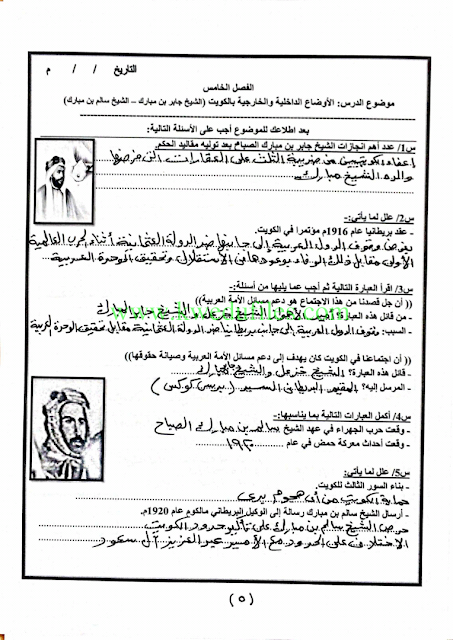 التاريخ / / م
الفصل الخامس
موضوع الدرس: الأوضاع الداخلية والخارجية بالكويت (الشيخ جابر بن مبارك – الشيخ سالم بن مبارك)
بعد اطلاعك للموضوع أجب على الأسئلة التالية:
س1/ عدد أهم انجازات الشيخ جابر بن مبارك الصباح بعد توليه مقاليد الحكم.
اعفاء الكويتيين عن ضريبة الثلث على العقارات التي فرضها
والده الشيخ مبارك
س2/ علل لما يأتي:-
- عقد بريطانيا عام 1916م مؤتمرا في الكويت.
بغرض وقوف الدول العربية إلى جانبها ضد الدولة العثمانية أثناء الحرب العالمية
الأولى مقابل ذلك الوفاء بوعودها في الاستقلال وتحقيق الوحدة العربية
س3/ اقرأ العبارة التالية ثم أجب عما يليها من أسئلة:-
(( أن جل قصدنا من هذا الاجتماع هو دعم مسائل الأمة العربية))
- من قائل هذه العبارة؟ أمير الأهواز الشيخ خزعل والشيخ جابر المبارك
- السبب: وقوف الدول العربية إلى جانب بريطانيا ضد الدولة العثمانية مقابل تحقيق الوحدة العربية
(( أن اجتماعنا في الكويت كان يهدف إلى دعم مسائل الأمة العربية وصيانة حقوقها))
- قائل هذه العبارة؟ الشيخ خزعل والشيخ جابر
- المرسل إليه؟ المقيم البريطاني السير (بيرسي كوكس)
س4/ أكمل العبارات التالية بما يناسبها:-
- وقعت حرب الجهراء في عهد الشيخ سالم بن مبارك الصباح
- وقعت أحداث معركة حمض في عام ١٩٢٠
س5/ علل لما يأتي:-
- بناء السور الثالث للكويت.
حماية الكويت من أي هجوم بري
- أرسال الشيخ سالم بن مبارك رسالة إلى الوكيل البريطاني مالكوم عام 1920م.
حرص الشيخ سالم بن مبارك على تأكيد حدود الكويت
الاختلاف على الحدود مع الأمير عبد العزيز آل سعود
(٥)